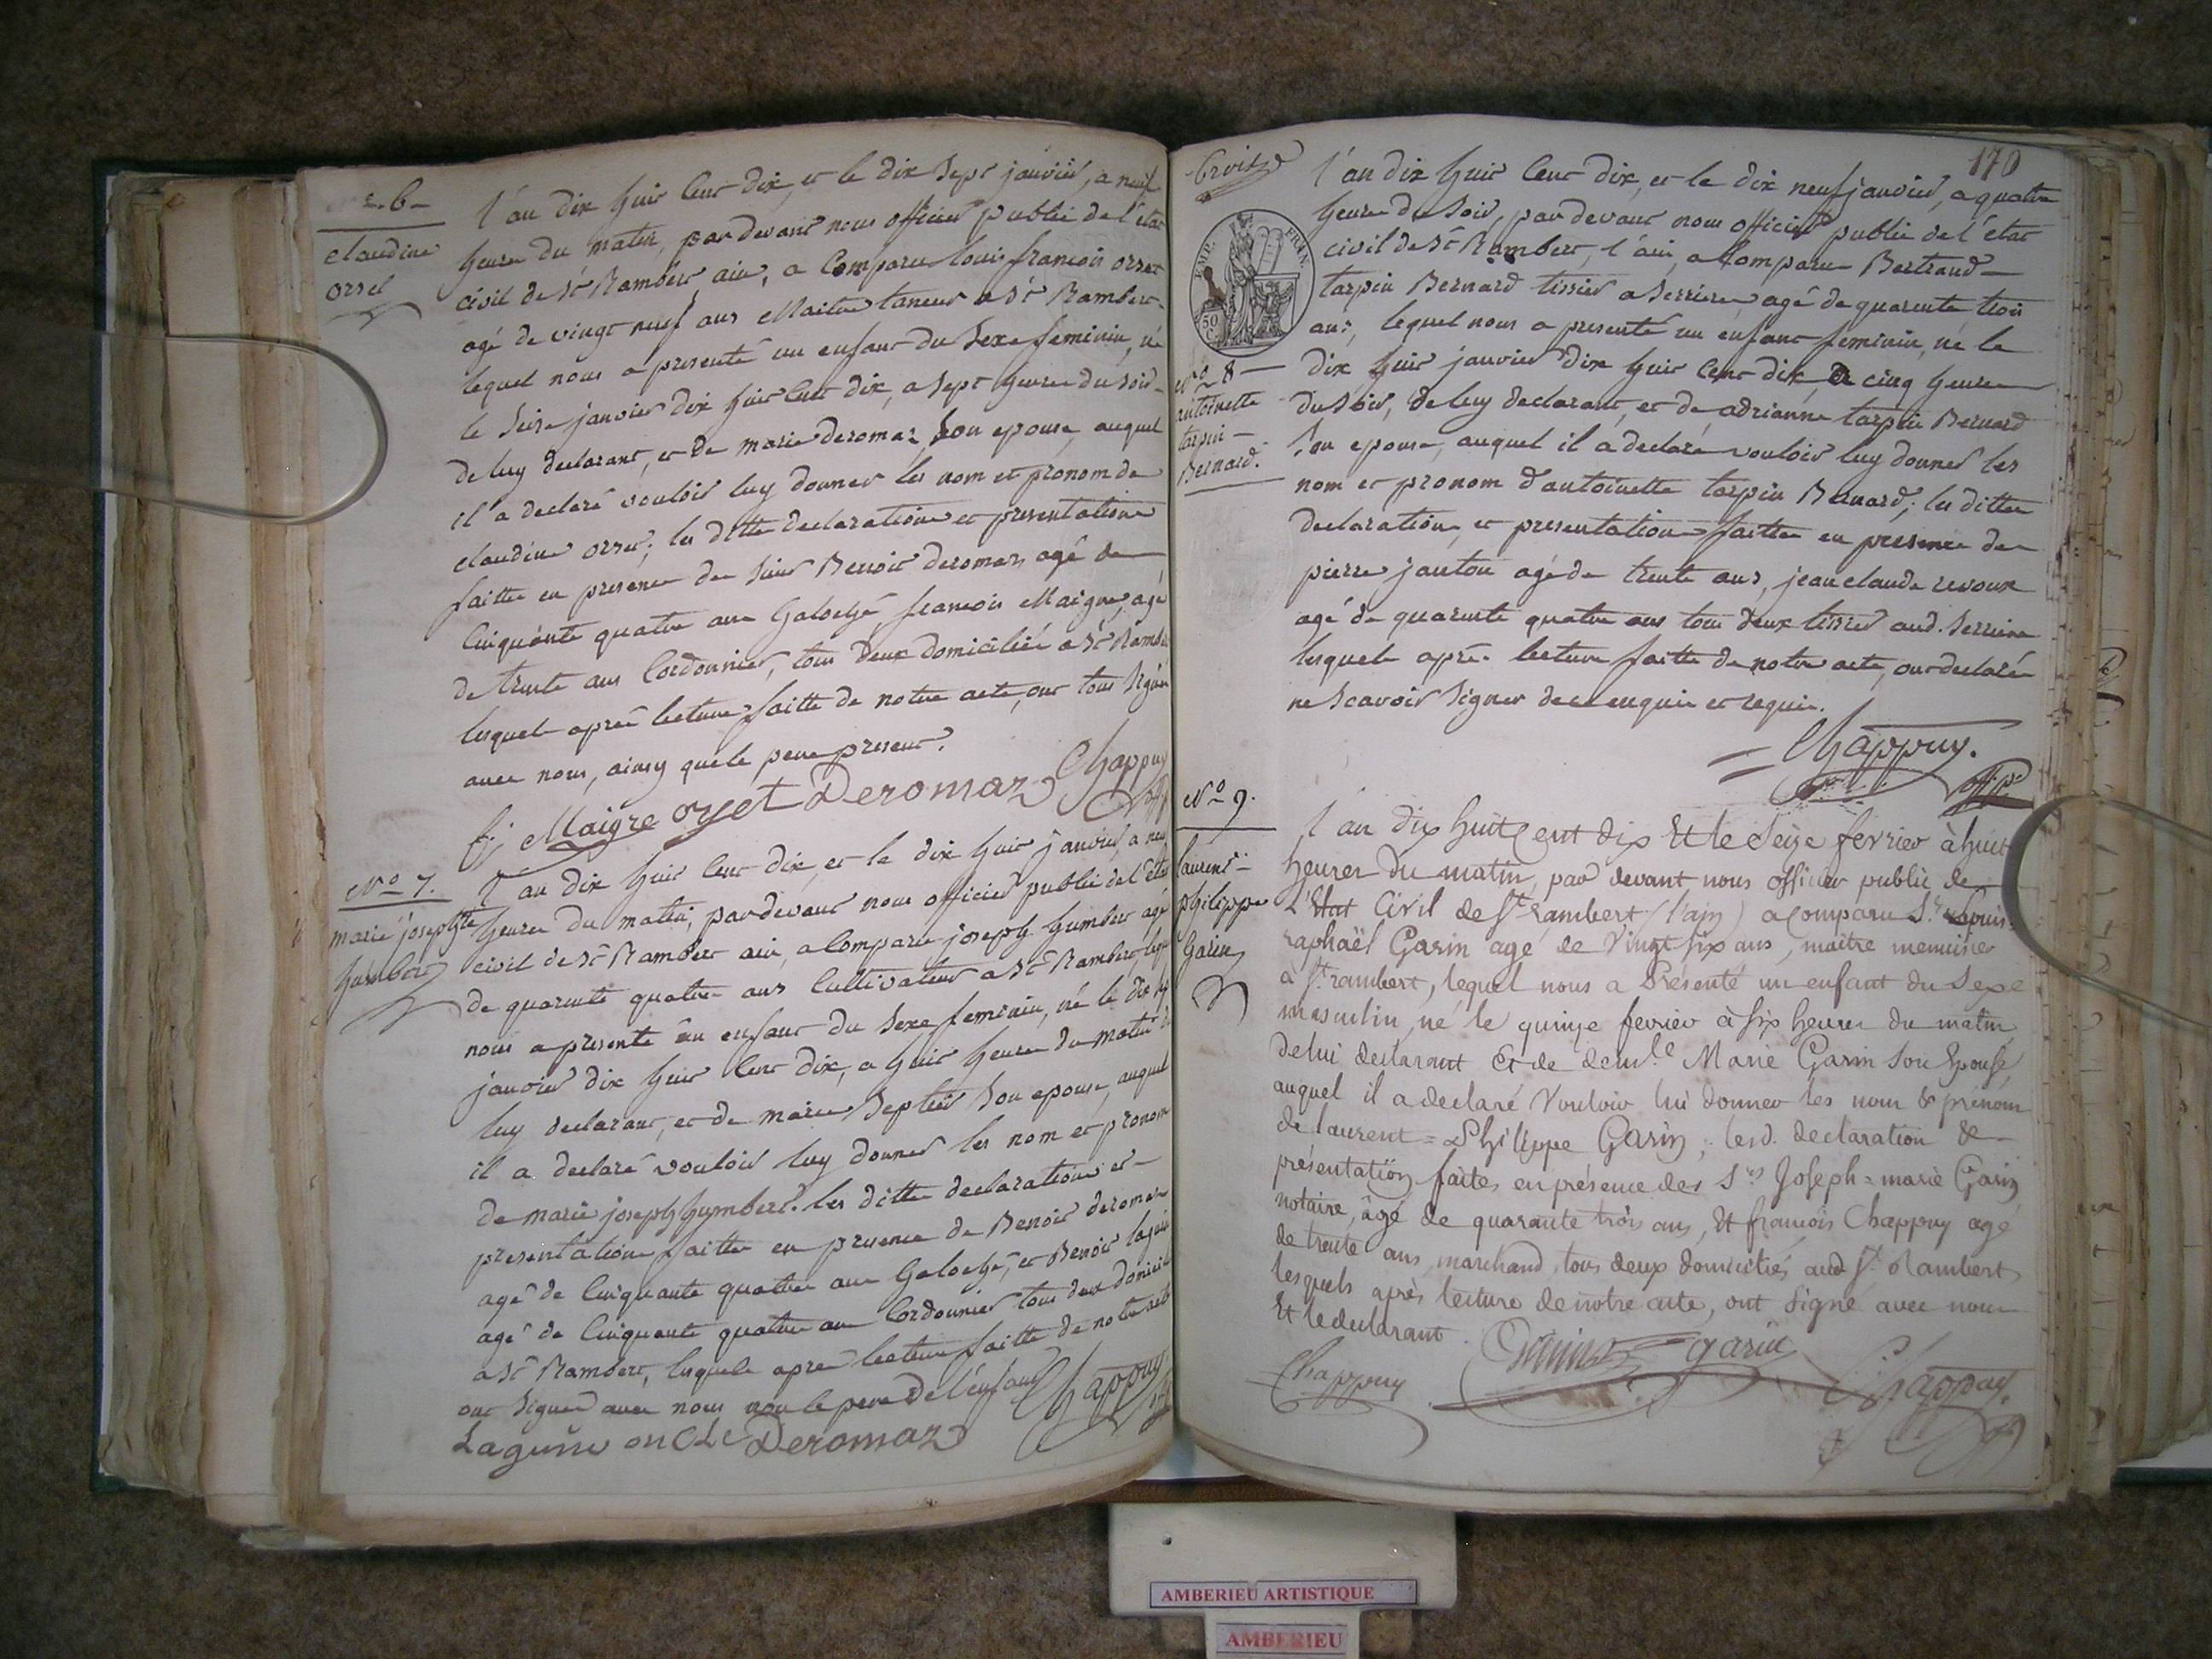 N.º 6
claudine
orsel
l'an dix huit Cent dix, et le dix Sept janvier, a neuf
heure du matin, par devant nous officier public de l'état
civil de St Rambert ain, a Comparu louis francois orset
agé de vingt neuf ans Maitre taneur a St Rambert
lequel nous a presenté un enfant du Sexe feminin, né
le Seize janvier dix huit Cent dix, a Sept heures du Soir
de luy declarant, et de marie deromaz, Son epouse, auquel
il a declaré vouloir luy donner les nom et pronom de
claudine orset; les ditte declarations et presentations
faitte en presence de Sieur Benoit deromaz agé de
Cinquante quatre ans Galoché, francois Maigre, agé
de trente ans Cordonnier, tous deux domiciliée a St Rambe
lesquels après lecture faitte de notre acte, ont tous Signé
avec nous, ainsy que le pere present.
f; Maigre orset Deromaz Chappuy
N.º 7.
marie josephte
humbert
l'an dix huit Cent dix, et le dix huit janvier, a neuf
heure du matin, par devant nous officier public de l'état
civil de St Rambert ain, a Comparu joseph humbert agé
de quarente quatre ans Cultivateur a St Rambert, lequel
nous a presenté un enfant du Sexe feminin, né le dix
janvier dix huit Cent dix, a huit heures du matin de
luy declarant, et de marie Son epouse, auquel
il a declaré vouloir luy donner les nom et pronom
de marie joseph humbert. les ditte declarations et
presentations faitte en presence de Benoit deromaz
agé de Cinquante quatre ans Galoché, et Benoit
agé de Cinquante quatre ans Cordonnier tous deux domicilié
a St Rambert, lesquels apres lecture faitte de notre acte
ont Signer avec nous non le pere de l'enfant
Deromaz Chappuy
170
l'an dix huit Cent dix, et le dix neuf janvier, a quatre
heure du Soir, par devant nous officier public de l'état
civil de St Rambert, l'ain, a Comparu Bertrand
tarpin Bernard tissier a Serriere agé de quarente trois
ans, lequel nous a presenté un enfant feminin, né le
dix huit janvier dix huit Cent dix, a cinq heures
du Soir, de luy declarant, et de adrianne tarpin Bernard
Son epouse, auquel il a declaré vouloir luy donner les
nom et pronom d'antoinette tarpin Bernard; les ditte
declarations, et presentations faitte en presence de
pierre janton agé de trente ans, jean claude revoux
agé de quarente quatre ans tous deux tissier aud. Serriere
lesquels après lecture faitte de notre acte, ont declaré
ne Scavoir Signer de ce enquis et requis.
Chappuy.
EMP. FRAN.
50
C
N.º 8
antoinette
tarpin
Bernard.
N.º 9.
laurent
philippe
Garin
l'an dix huit Cent dix Et le Seize fevrier à huit
heures du matin, par devant nous officier public de
L'Etat Civil de St rambert (l'ain) a Comparu Sr Louis
raphaël Garin agé de Vingt six ans, maitre menuisier
à St rambert, lequel nous a Présenté un enfant du Sexe
masculin, né le quinze fevrier à six heures du matin
de lui declarant Et de demlle Marie Garin Son Epouse
auquel il a declaré Vouloir lui donner les nom & prenom
de laurent=Philippe Garin; lesd. declaration &
présentation faites en présence des Srs Joseph=marie Garin
notaire, âgé de quarante trois ans, Et françois Chappuy agé
de trente ans, marchand, tous deux domiciliés aud St Rambert
lesquels après lecture de notre acte, ont Signé avec nous
Et le declarant.
Chappuy garin Chappuy.
AMBERIEU ARTISTIQUE
AMBERIEU